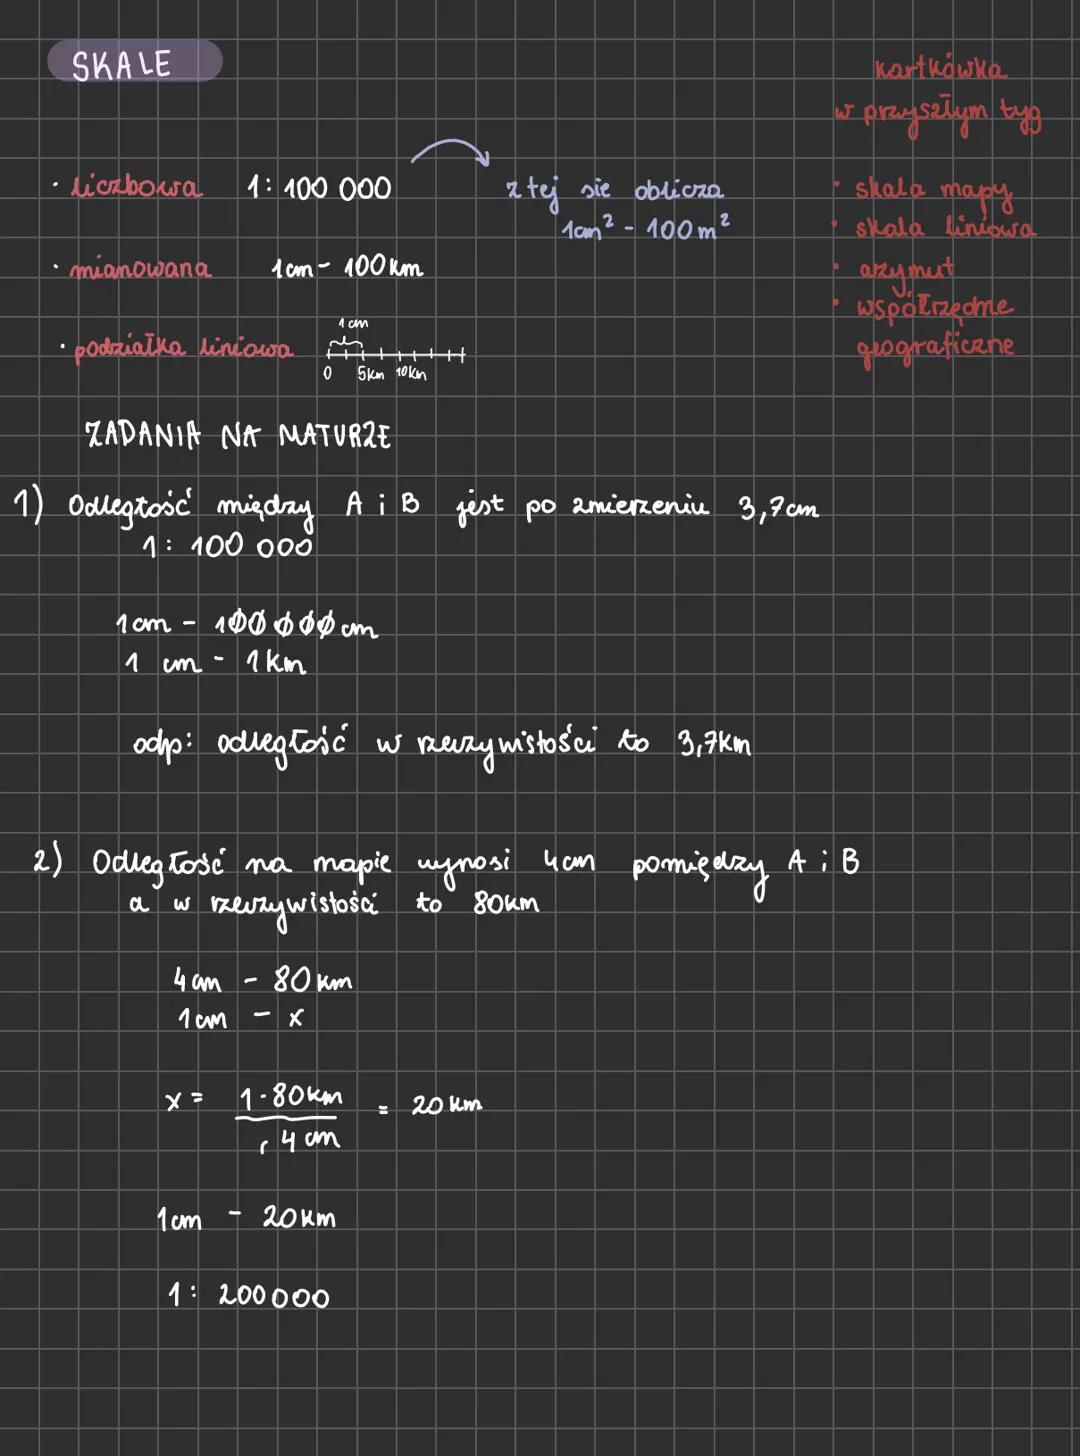 SKALE
kartkówka
w przyszłym tyg
• skala mapy
• skala liniowa
• azymut
• współrzędne
geograficzne
• liczbowa 1: 100 000
z tej sie oblicza
1cm² - 100m²
• mianowana 1cm - 100km
• podziałka liniowa
1 cm
0 5km 10km
ZADANIA NA MATURZE
1) Odległość między A i B jest po zmierzeniu 3,7cm
1: 100 000
1cm - 100 000 cm
1 cm - 1km
odp: odległość w rzeczywistości to 3,7km
2) Odległość na mapie wynosi 4cm pomiędzy A i B
a w rzeczywistości to 80km
4cm - 80km
1cm - x
x = 1·80km / 4cm = 20km
1cm - 20km
1: 200000